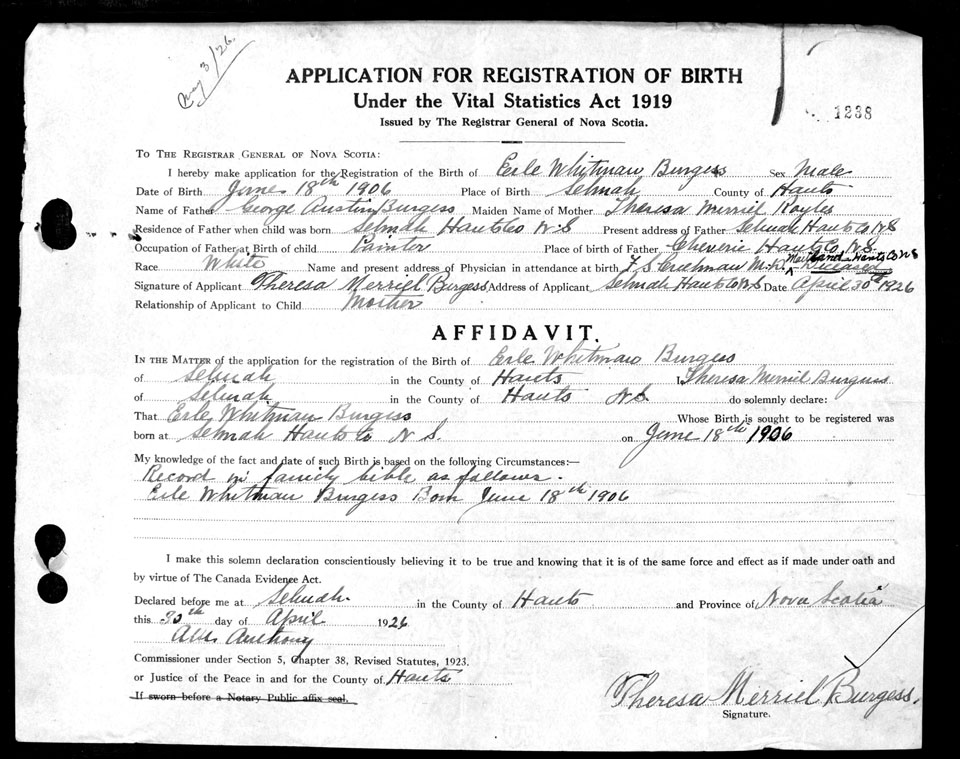 May 3/26.
APPLICATION FOR REGISTRATION OF BIRTH
Under the Vital Statistics Act 1919
Issued by The Registrar General of Nova Scotia.
1238
To The Registrar General of Nova Scotia:
I hereby make application for the Registration of the Birth of Erle Whitman Burgess Sex Male
Date of Birth June 18th 1906 Place of Birth Selmah County of Hants
Name of Father George Austin Burgess Maiden Name of Mother Theresa Merriel
Residence of Father when child was born Selmah Hants Co N.S Present address of Father Selmah Hants Co N S
Occupation of Father at Birth of child Painter Place of birth of Father Cheverie Hants Co, N.S.
Race White Name and present address of Physician in attendance at birth M.D. Maitland Hants Co N S Deceased
Signature of Applicant Theresa Merriel Burgess Address of Applicant Selmah Hants Co N S Date April 30th 1926
Relationship of Applicant to Child Mother
AFFIDAVIT.
In the Matter of the application for the registration of the Birth of Erle Whitman Burgess
of Selmah in the County of Hants I, Theresa Merriel Burgess
of Selmah in the County of Hants N S do solemnly declare:
That Erle Whitman Burgess Whose Birth is sought to be registered was
born at Selmah Hants Co N S. on June 18th 1906
My knowledge of the fact and date of such Birth is based on the following Circumstances:—
Record in family bible as follows.
Erle Whitman Burgess Born June 18th 1906
I make this solemn declaration conscientiously believing it to be true and knowing that it is of the same force and effect as if made under oath and
by virtue of The Canada Evidence Act.
Declared before me at Selmah in the County of Hants and Province of Nova Scotia
this 30th day of April 1926
Anthony
Commissioner under Section 5, Chapter 38, Revised Statutes, 1923.
or Justice of the Peace in and for the County of Hants
If sworn before a Notary Public affix seal.
Theresa Merriel Burgess.
Signature.